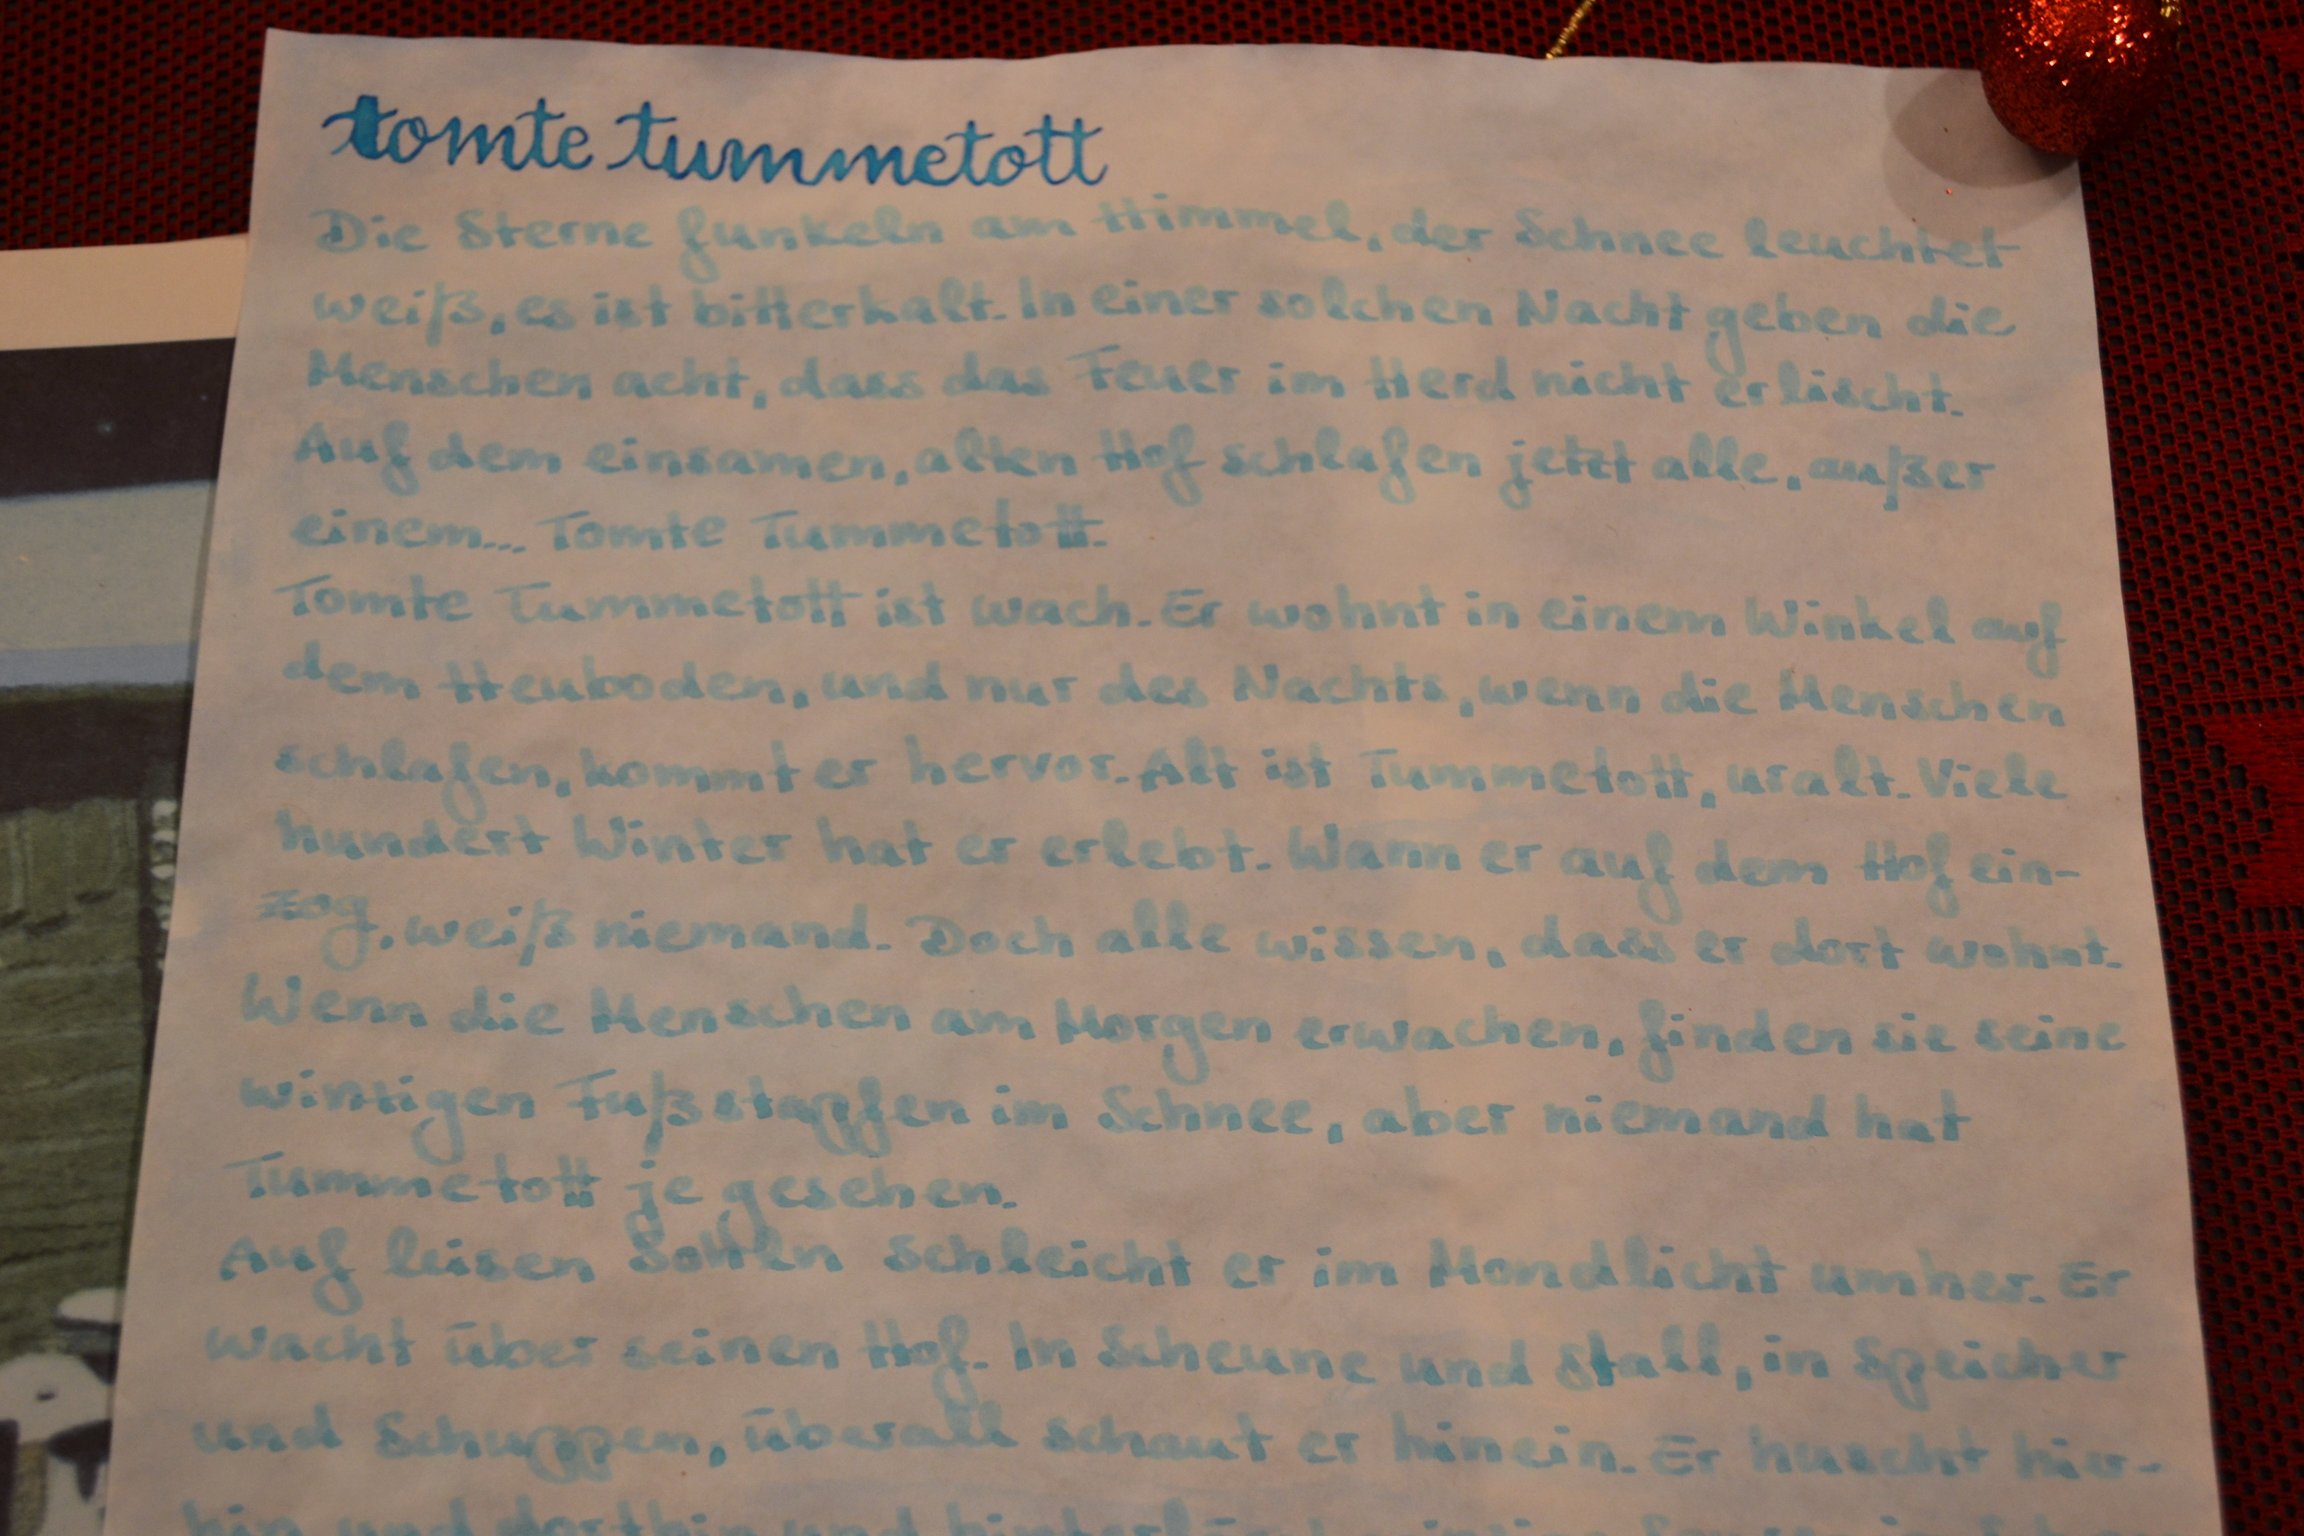 tomte tummetott
Die Sterne funkeln am Himmel, der Schnee leuchtet
weiß, es ist bitterkalt. In einer solchen Nacht geben die
Menschen acht, dass das Feuer im Herd nicht erlischt.
Auf dem einsamen, alten Hof schlafen jetzt alle, außer
einem... Tomte Tummetott.
Tomte Tummetott ist wach. Er wohnt in einem Winkel auf
dem Heuboden, und nur des Nachts, wenn die Menschen
schlafen, kommt er hervor. Alt ist Tummetott, uralt. Viele
hundert Winter hat er erlebt. Wann er auf dem Hof ein-
zog, weiß niemand. Doch alle wissen, dass er dort wohnt.
Wenn die Menschen am Morgen erwachen, finden sie seine
wintigen Fußstapfen im Schnee, aber niemand hat
Tummetott je gesehen.
Auf leisen Sohlen schleicht er im Mondlicht umher. Er
wacht über seinen Hof. In Scheune und Stall, in Speicher
und Schuppen, überall schaut er hinein. Er huscht hier-
hin und dorthin und